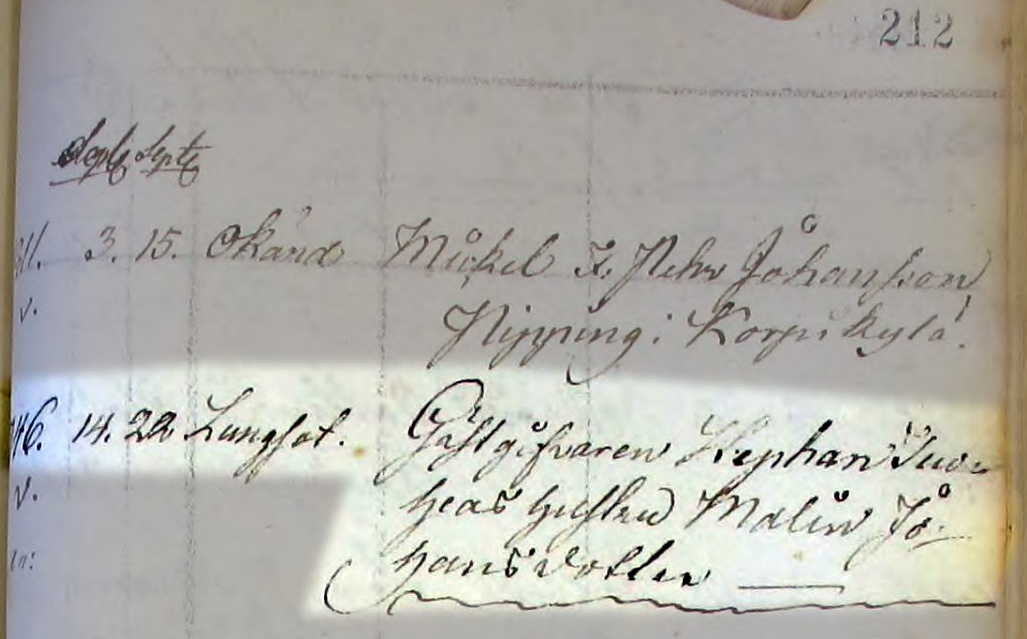 212
Sept. Sept.
3. 15. Okänd Mickel I. Pehr Johansson
v. Nipping i Korpikylä.
46. 14. 22 Lungsot. Gästgifvaren Stephan
v. hustru Malin Jo-
hansdotter